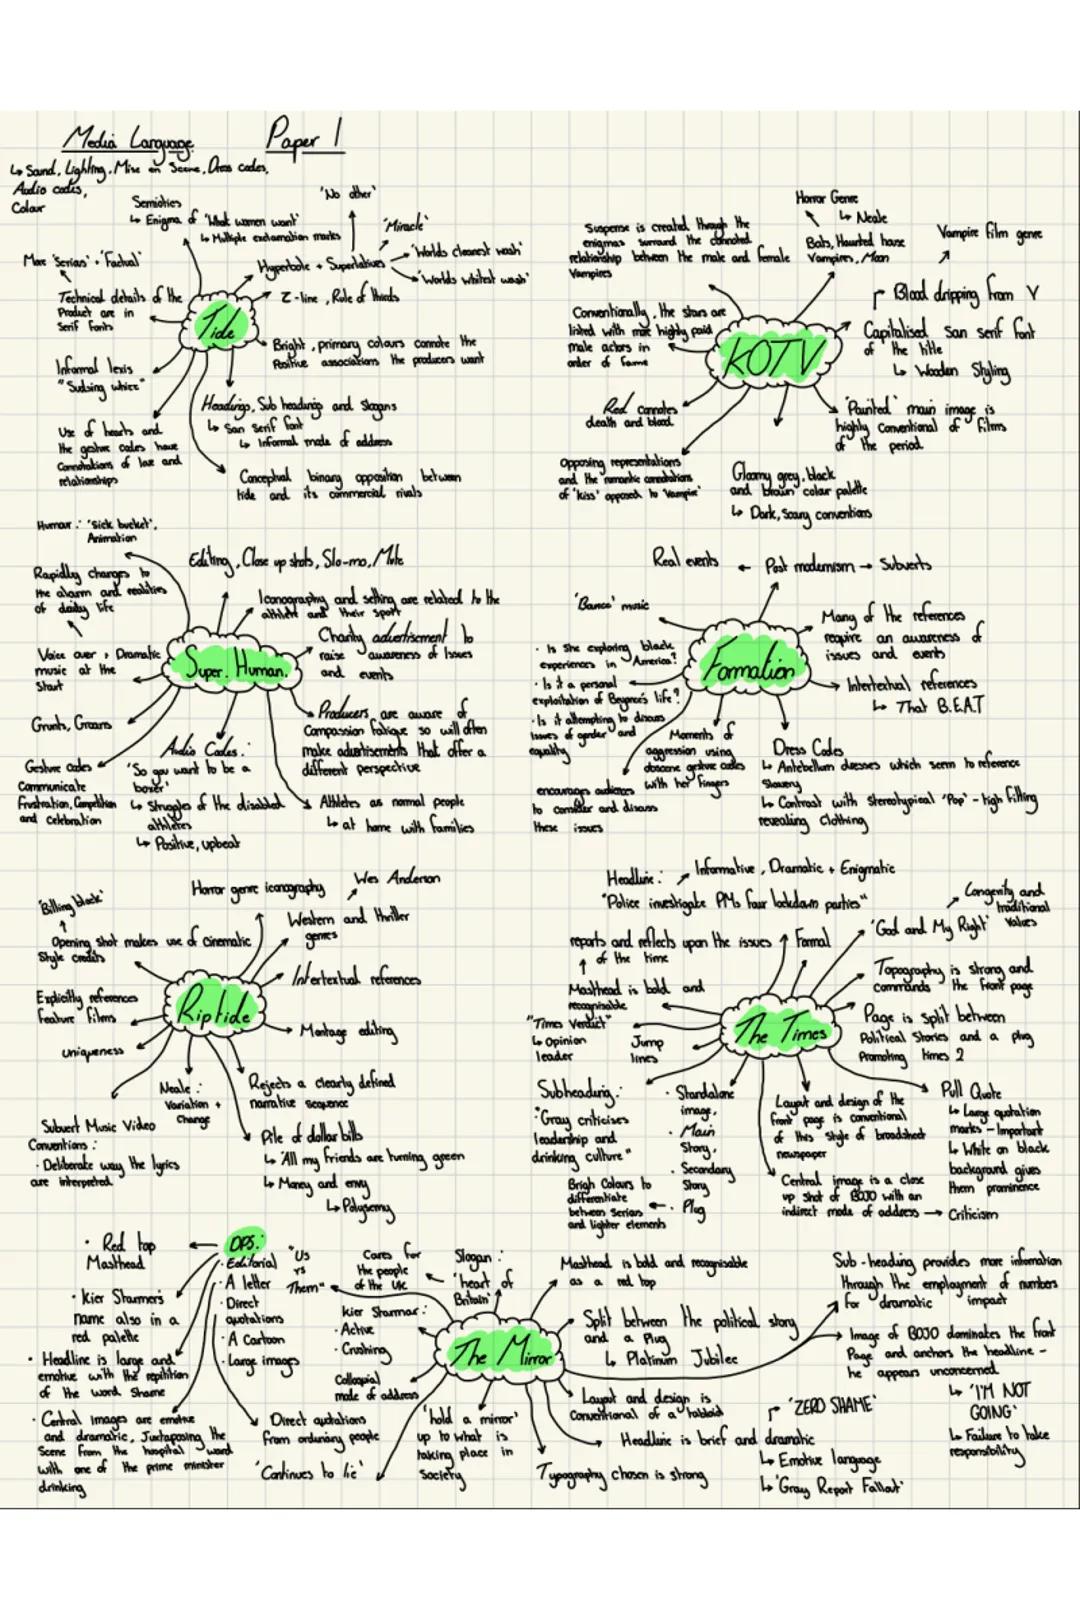 Media Language Paper 1
↳ Sound, Lighting, Mise en Scene, Dress codes,
Audio codes,
Colour
Semiotics
↳ Enigma of 'What women want'
↳ Multiple exclamation marks
'No other'
'Miracle'
Hyperbole + Superlatives
'Worlds cleanest wash'
'Worlds whitest wash'
More 'Serious' + 'Factual'
Technical details of the
Product are in
Serif fonts
Tide
Z-line, Rule of thirds
Bright, primary colours connote the
Positive associations the producers want
Informal lexis
"Sudsing whizz"
Headings, Sub headings and Slogans
↳ San Serif font
↳ Informal mode of address
Use of hearts and
the gesture codes have
Connotations of love and
relationships
Conceptual binary opposition between
tide and its commercial rivals
Horror Genre
↳ Neale
Bats, Haunted house
Vampires, Moon
Vampire film genre
Suspense is created through the
enigmas surround the connoted
relationship between the male and female
Vampires
Blood dripping from V
Conventionally, the stars are
listed with most highly paid
male actors in
order of fame
KOTV
Capitalised San serif font
of the title
↳ Wooden Styling
Red connotes
death and blood
'Painted' main image is
highly conventional of films
of the period.
Opposing representations
and the 'romantic connotations
of 'kiss' opposed to Vampire'
Gloomy grey, black
and brown colour palette
↳ Dark, Scary conventions
Humour: 'Sick bucket',
Animation
Editing, Close up shots, Slo-mo, Mute
Rapidly changes to
the alarm and realities
of daily life
Iconography and setting are related to the
athlete and their sport
Voice over + Dramatic
music at the
Start
Super. Human.
Charity advertisement to
raise awareness of Issues
and events
Grunts, Groans
Producers are aware of
Compassion fatigue so will often
make advertisements that offer a
different perspective
Gesture codes
Communicate
Frustration, Competition
and celebration
Audio Codes:
'So you want to be a
boxer'
↳ Struggles of the disabled
athletes
↳ Positive, upbeat
Athletes as normal people
↳ at home with families
Real events ← Post modernism → Subverts
'Bounce' music
Many of the references
require an awareness of
issues and events
· Is She exploring black
experiences in America?
· Is it a personal
exploitation of Beyonce's life?
· Is it attempting to discuss
issues of gender and
equality
Formation
Intertextual references
↳ That B.E.A.T
encourages audiences
to consider and discuss
these issues
Moments of
aggression using
obscene gesture codes
with her fingers
Dress Codes
↳ Antebellum dresses which seem to reference
Slavery
↳ Contrast with stereotypical 'Pop' - tight fitting
revealing clothing
Horror genre iconography
Wes Anderson
'Billing block'
Opening shot makes use of cinematic
Style credits
Western and thriller
genres
Intertextual references
Explicitly references
feature films
Riptide
Montage editing
uniqueness
Neale:
Variation +
Change
Rejects a clearly defined
narrative sequence
Subvert Music Video
Conventions:
· Deliberate way the lyrics
are interpreted.
Pile of dollar bills
↳ 'All my friends are turning green
↳ Money and envy
↳ Polysemy
Headline: Informative, Dramatic + Enigmatic
"Police investigate PMs four lockdown parties"
Longevity and
traditional
Values
reports and reflects upon the issues
of the time
Formal
'God and My Right'
Masthead is bold and
recognisable
Topography is strong and
commands the front page
"Times Verdict"
↳ Opinion
leader
Jump
lines
The Times
Page is split between
Political Stories and a plug
Promoting times 2
Subheading:
"Gray criticises
leadership and
drinking culture"
· Standalone
image,
· Main
Story,
· Secondary
Story
· Plug
Brigh Colours to
differentiate
between Serious
and lighter elements
Layout and design of the
front page is conventional
of this style of broadsheet
newspaper
Central image is a close
up shot of BOJO with an
indirect mode of address → Criticism
Pull Quote
↳ Large quotation
marks - Important
↳ White on black
background gives
them prominence
DPS:
· Editorial
· A letter
· Direct
quotations
· A Cartoon
· Large images
· Red top
Masthead
· Kier Starmer's
name also in a
red palette
· Headline is large and
emotive with the repitition
of the word Shame
· Central images are emotive
and dramatic, Juxtaposing the
Scene from the hospital ward
with one of the prime minister
drinking
"Us
vs
Them"
Cares for
the people
of the UK
Slogan:
'heart of
Britain'
Kier Starmar:
· Active
· Crushing
Colloquial
mode of address
Direct quotations
from ordinary people
'Continues to lie'
The Mirror
'hold a mirror'
up to what is
taking place in
Society
Masthead is bold and recognisable
as a red top
Split between the political story
and a Plug
↳ Platinum Jubilee
Layout and design is
Conventional of a tabloid
Headline is brief and dramatic
'ZERO SHAME'
↳ Emotive language
↳ 'Gray Report Fallout'
Typography chosen is strong
Sub-heading provides more information
through the employment of numbers
for dramatic impact
Image of BOJO dominates the front
Page and anchors the headline -
he appears unconcerned
↳ 'I'M NOT
GOING'
↳ Failure to take
responsibility